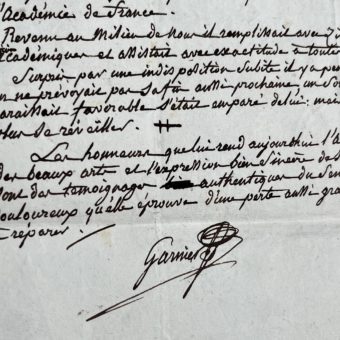 l'Académie de France.
Revenu au Milieu de nous il remplissait avec
académiques et assistait avec exactitude à toutes
Surpris par une indisposition subite il y a peu
on ne prévoyait pas sa fin aussi prochaine, un So
paraissait favorable s'était emparé de lui: mais
plus se réveiller.
Les honneurs que lui rend aujourd'hui l'A
des beaux arts et l'expression bien sincère de S
sont des témoignage authentiques du Sen
douloureux qu'elle éprouve d'une perte aussi gra
réparer.
Garnier